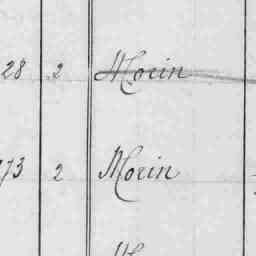 28 2 Morin
73 2 Morin